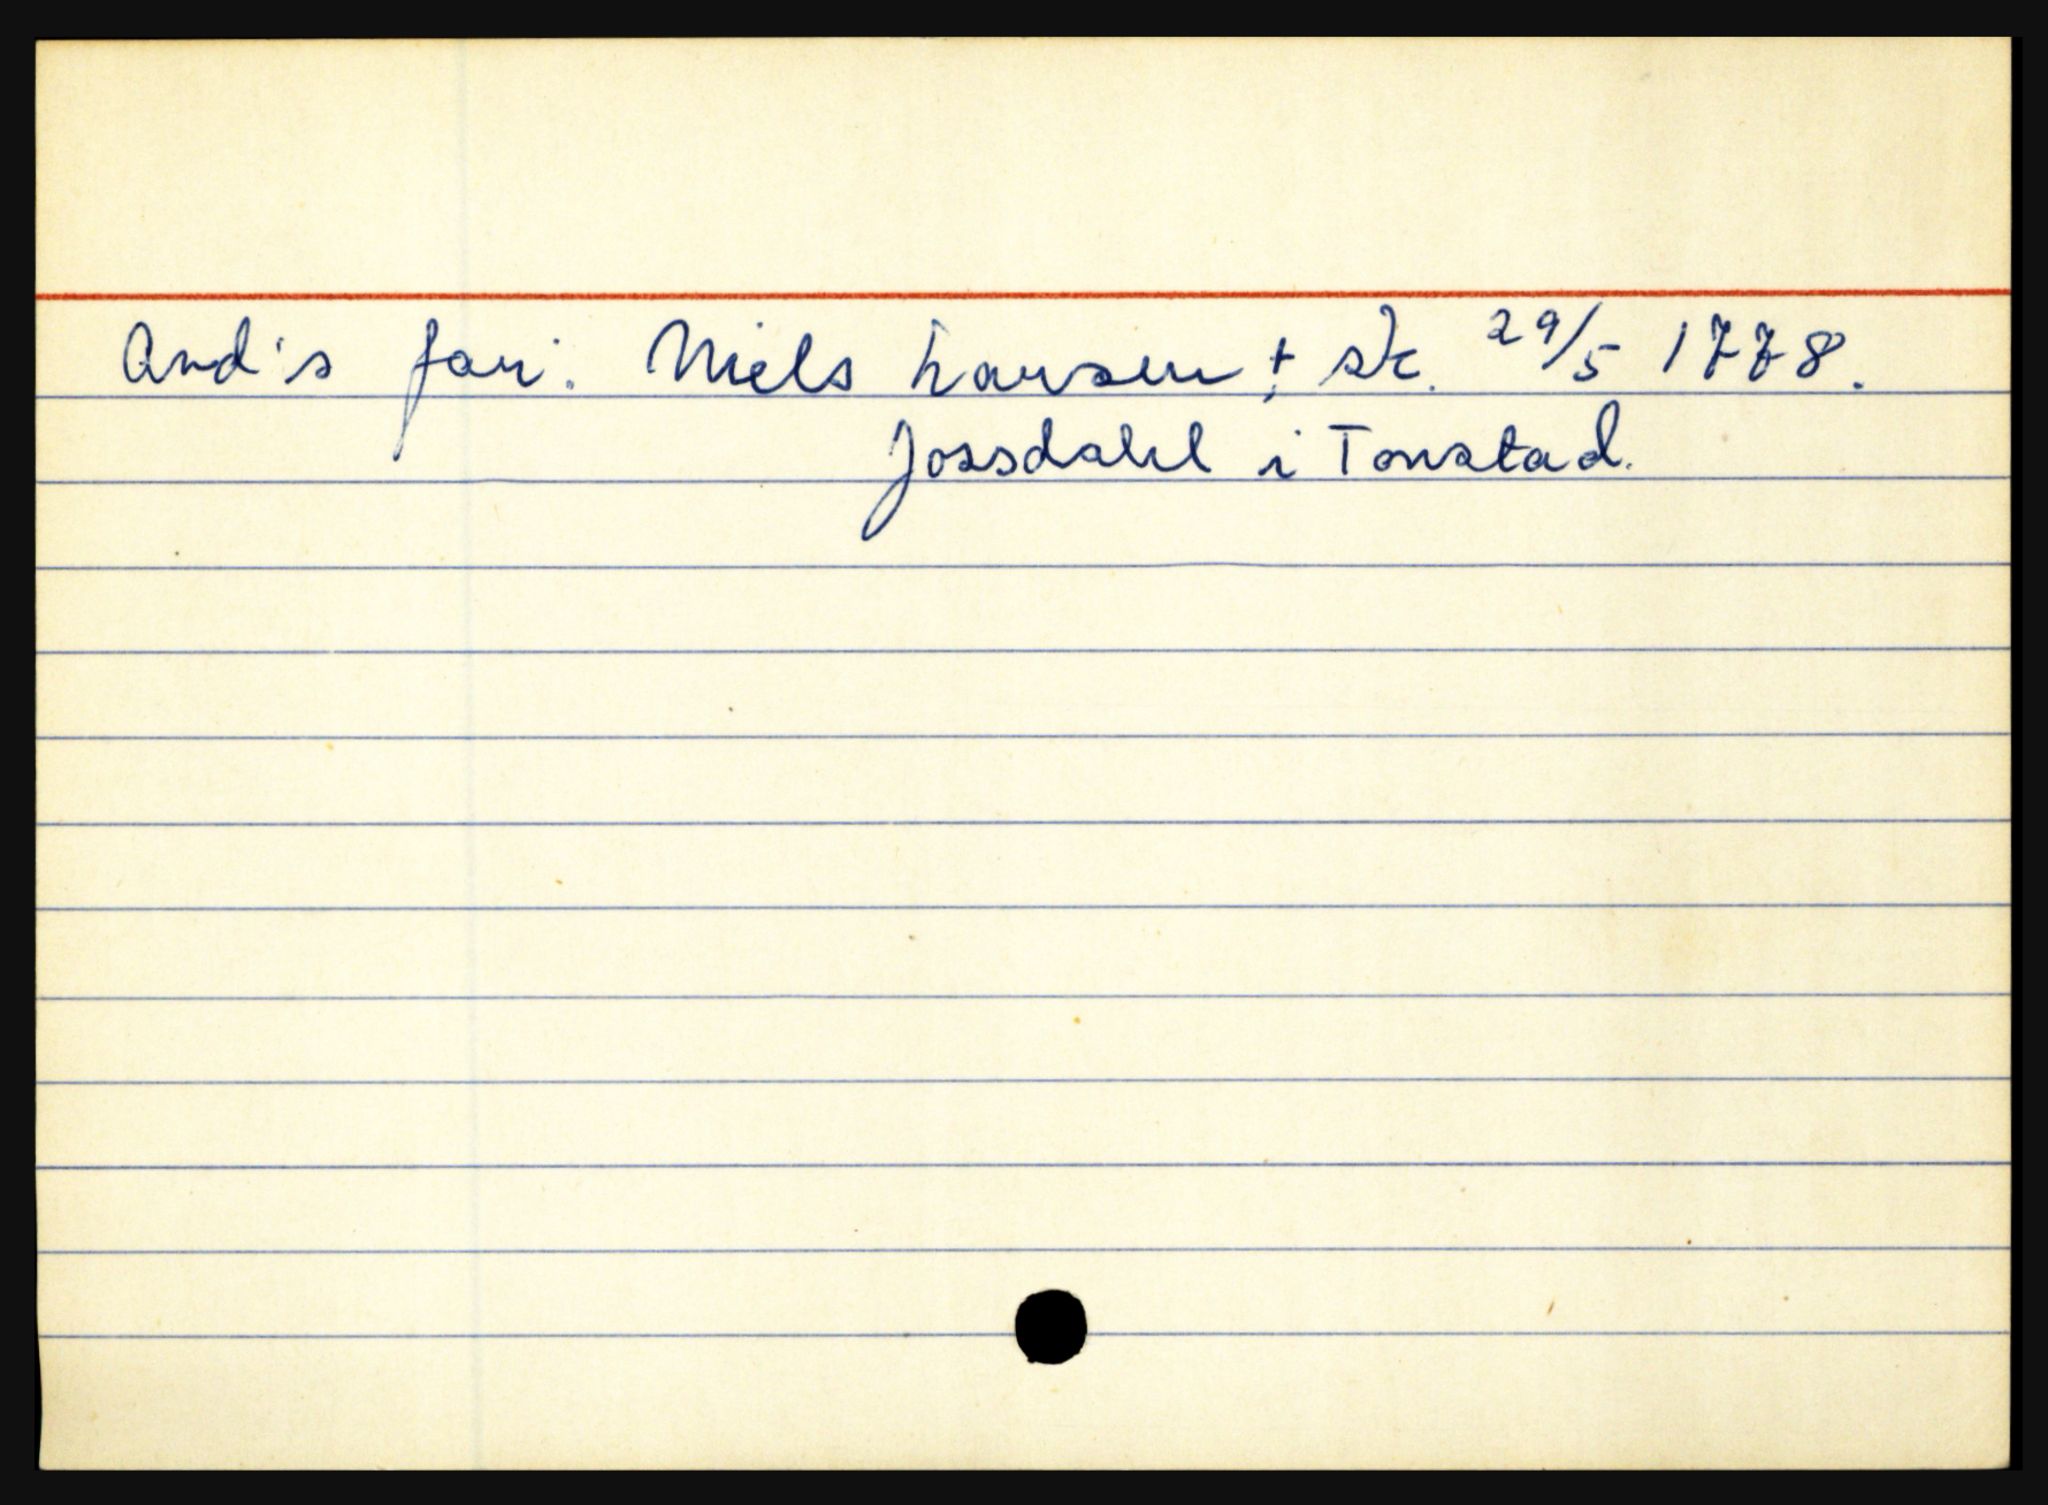 And's far: Niels Larsen + sk. 29/5 1778.
Jossdahl i Tonstad.